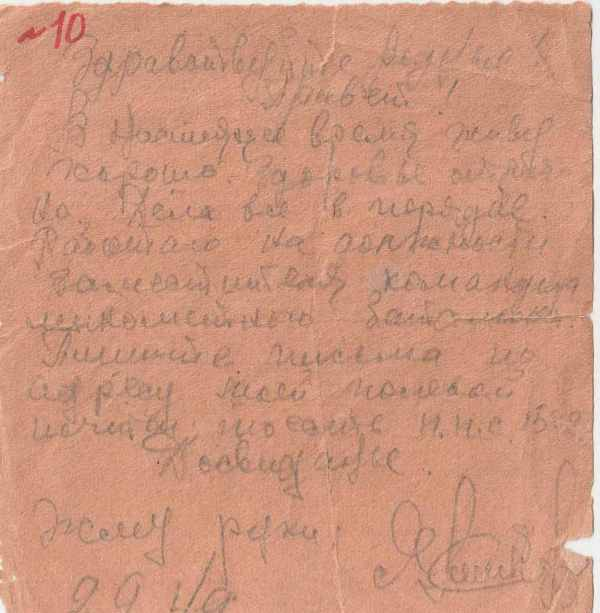 №10
Здравствуйте
Привет!
В настоящее время живу
хорошо. Здоровье отлич-
но. Дела все в порядке.
Работаю на должности
заместителя командира
минометного
Пишите письма по
адресу моей полевой
почты
Досвиданье.
Жму руки.